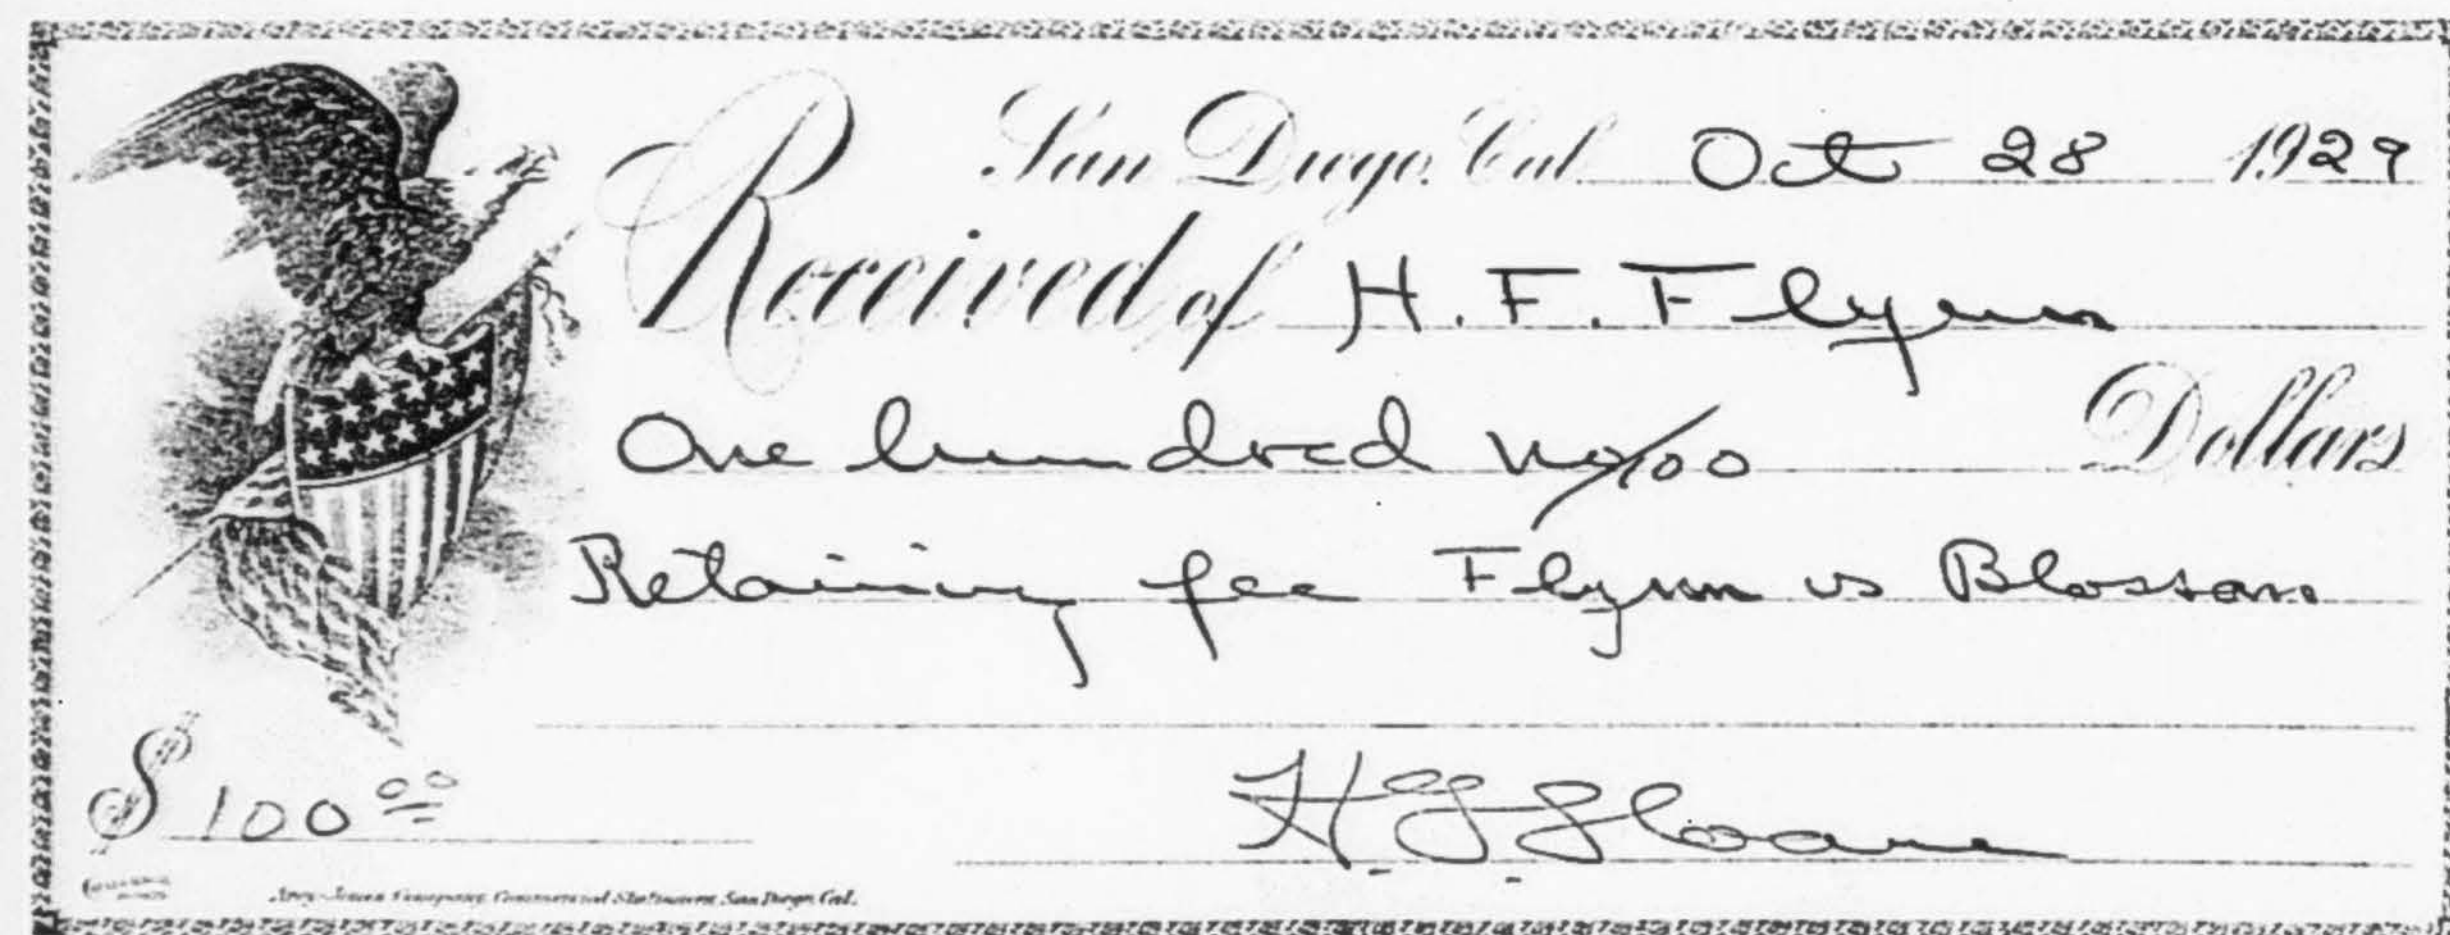 San Diego, Cal. Oct 28 1929
Received of H. F. Flynn
One hundred no/100 Dollars
Retaining fee Flynn vs Blossom
$ 100 00
H G Sloane
Company, Commercial Stationers, San Diego, Cal.